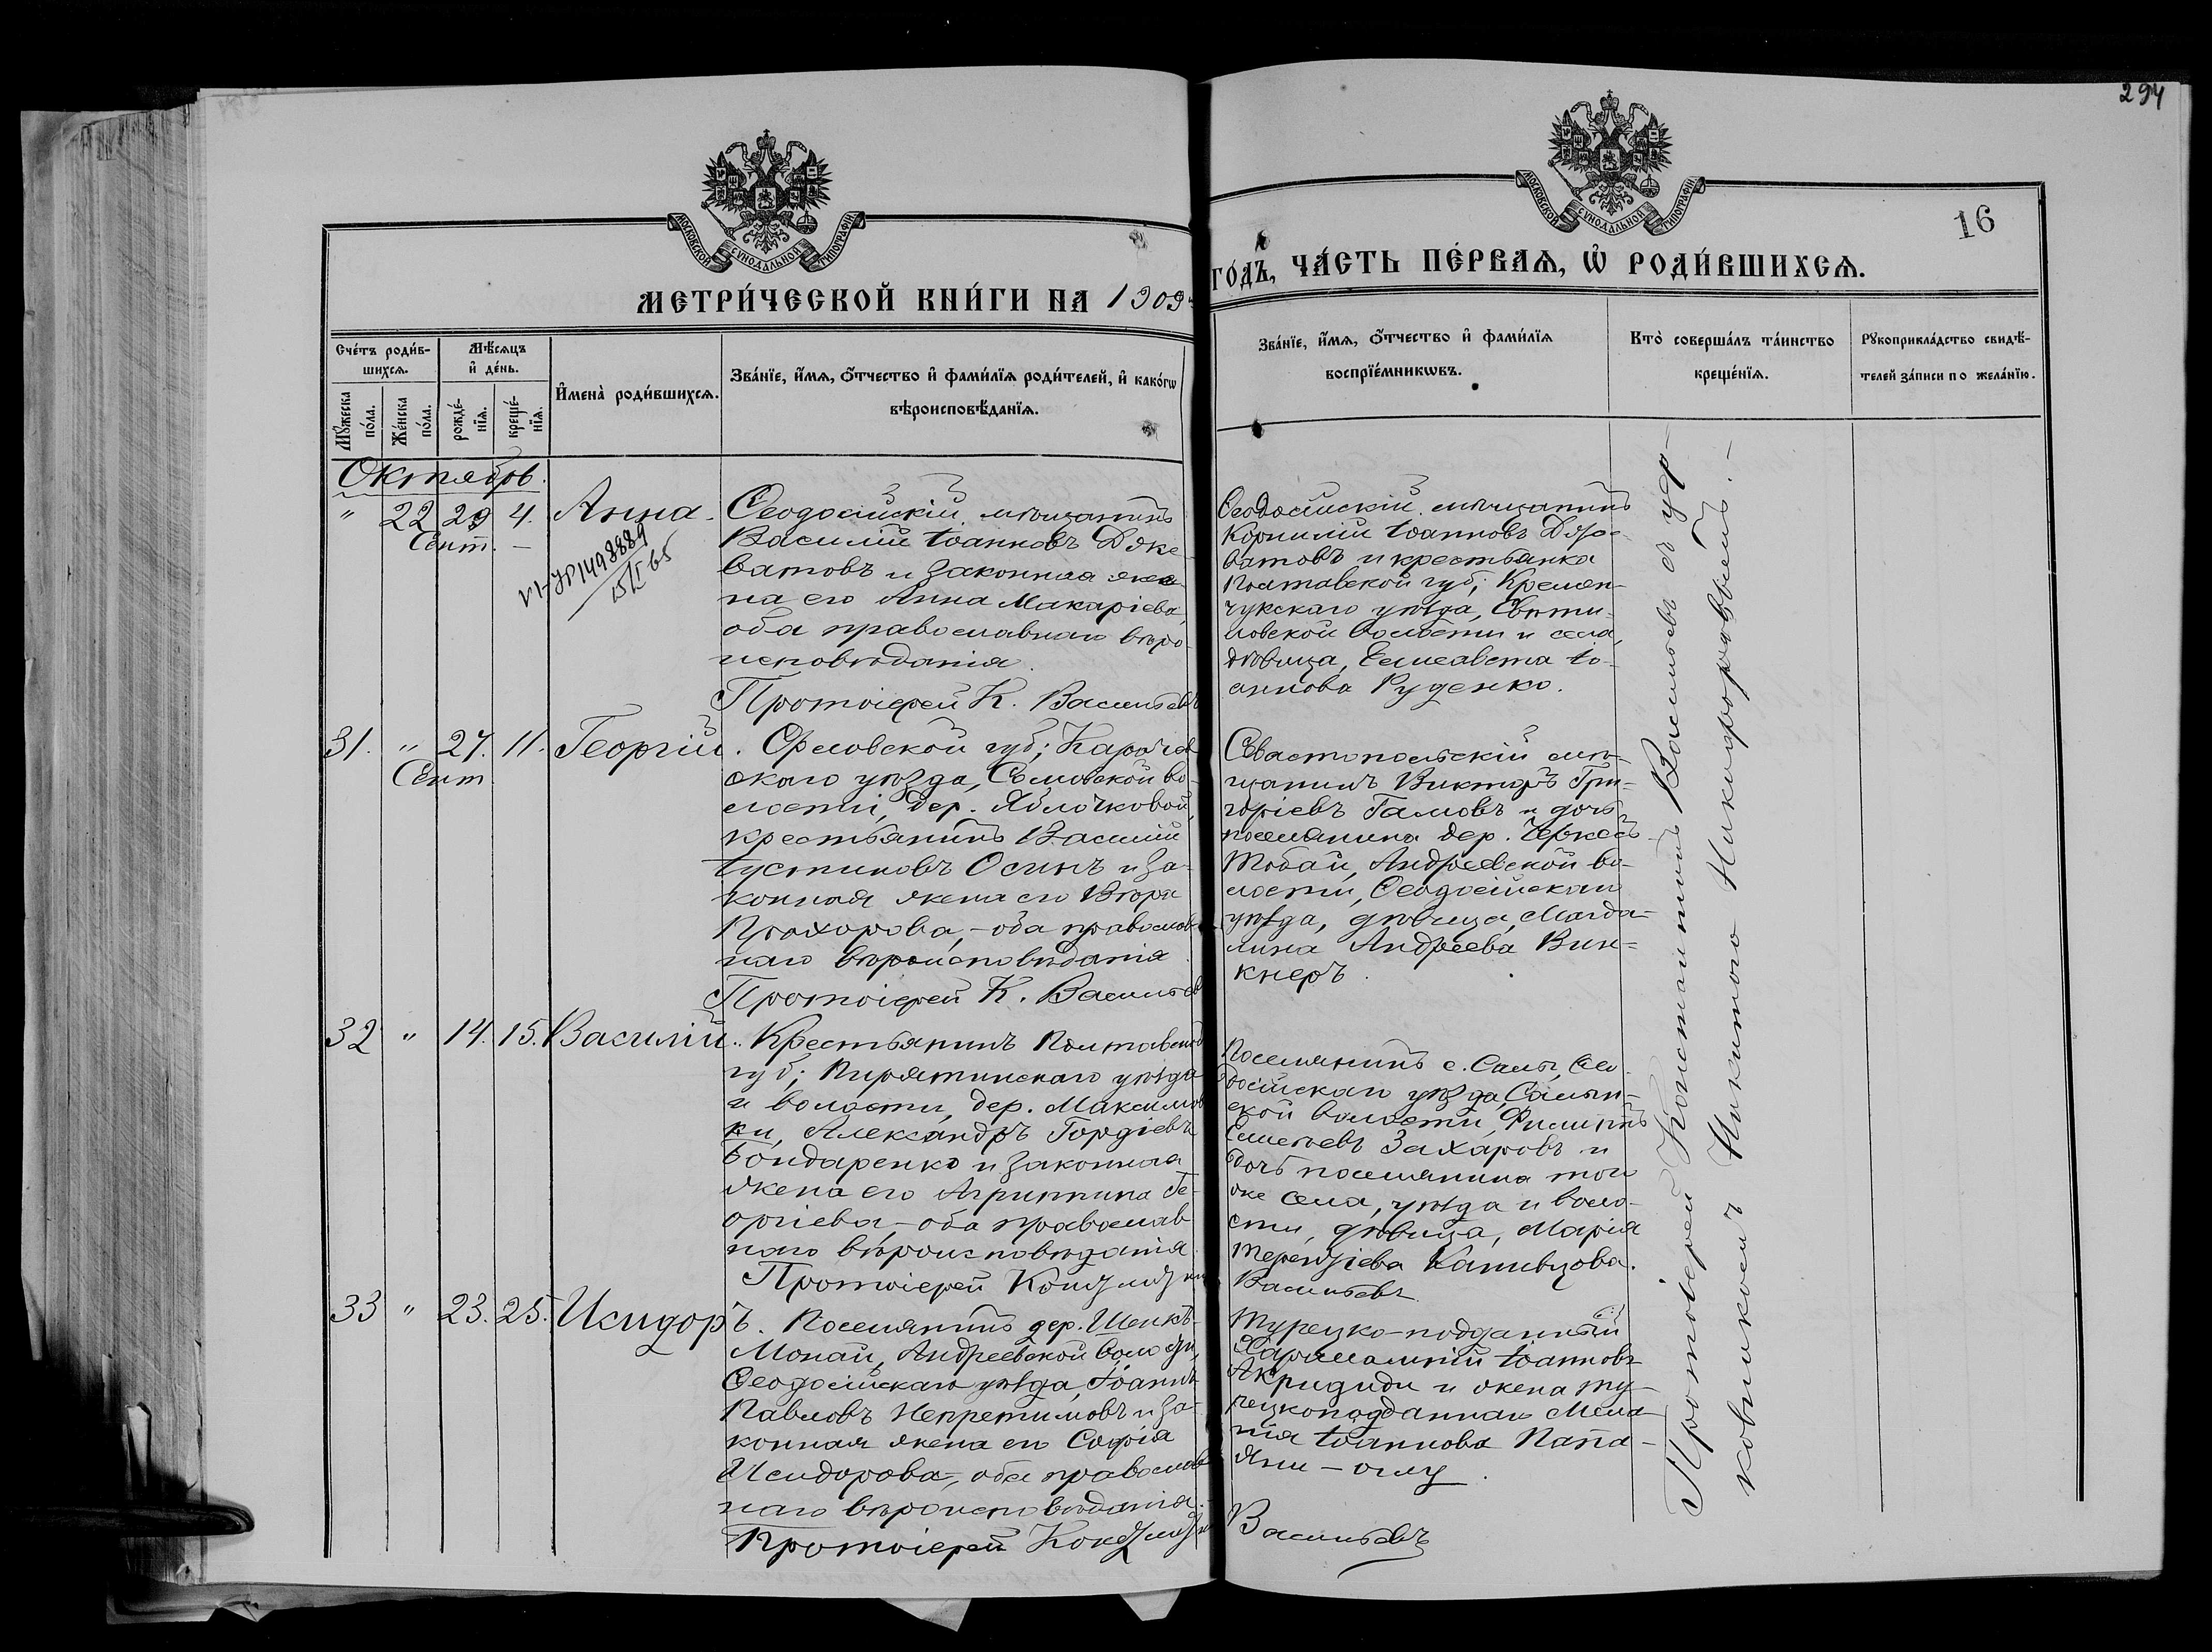 294
16
МОСКОВСКОЙ СѴНОДАЛЬНОЙ ТИПОГРАФІИ
МОСКОВСКОЙ СѴНОДАЛЬНОЙ ТИПОГРАФІИ
МЕТРИ́ЧЕСКОЙ КНИ́ГИ НА 1909
ГО́ДЪ, ЧА́СТЬ ПЕ́РВАѦ, Ѡ҆ РОДИ́ВШИХСѦ.
Сче́тъ роди́в-
шихсѧ.
Мꙋ́жеска по́ла.
Же́нска по́ла.
Мѣ́сѧцъ
и҆ де́нь.
рожде́-
нїѧ.
креще́-
нїѧ.
И҆мена̀ роди́вшихсѧ.
Зва́нїе, и҆́мѧ, ѻ҆́тчество и҆ фами́лїѧ роди́телей, и҆ како́гѡ
вѣроисповѣ́данїѧ.
Зва́нїе, и҆́мѧ, ѻ҆́тчество и҆ фами́лїѧ
воспрїе́мникѡвъ.
Кто̀ соверша́лъ та́инство
креще́нїѧ.
Рꙋкоприкла́дство свидѣ́-
телей за́писи по жела́нїю.
Октябрь.
" 22 29 4. Анна.
Сент. –
VI-УР 1498889
15/I 65
Ѳеодосійскій мѣщанинъ
Василій Іоанновъ Дяке-
ватовъ и законная же-
на его Анна Макаріева,
оба православнаго вѣро-
исповѣданія.
Протоіерей К. Васильевъ
Ѳеодосійскій мѣщанинъ
Корнилій Іоанновъ
ватовъ и крестьянка
Полтавской губ; Кремен-
чукскаго уѣзда,
ловской волости и села,
дѣвица, Елисавета Іо-
аннова Руденко.
31. " 27. 11. Георгій.
Сент.
Орловской губ; Карачев
скаго уѣзда, во-
лости, дер. Яблочковой,
крестьянинъ Василій
Іустиновъ Осинъ и за-
конная жена его Вѣра
Прохорова, – оба православ-
наго вѣроисповѣданія
Протоіерей К. Васильев
Севастопольскій мѣ-
щанинъ Викторъ Гри-
горіевъ Гамовъ и дочь
поселянина дер. Черкесъ-
Тобай, Андреевской во-
лости, Ѳеодосійскаго
уѣзда, дѣвица, Магда-
лина Андреева Вин-
кнеръ.
32 " 14. 15. Василій.
Крестьянинъ Полтавской
губ; Пирятинскаго уѣзда
и волости, дер. Максимов
ки, Александръ Гордіевъ
Бондаренко и законная
жена его Агриппина Ге-
оргіева, – оба православ
наго вѣроисповѣданія.
Протоіерей Константин
Поселянинъ с. Салы, Ѳео-
досійскаго уѣзда, Салын-
ской волости, Филиппъ
Захаровъ и
дочь поселянина того
же села, уѣзда и воло-
сти, дѣвица, Марія
Терентіева Каливцова.
Васильевъ
33 " 23. 25. Исидоръ.
Поселянинъ дер. Шейхъ-
Монай, Андреевской волости,
Ѳеодосійскаго уѣзда, Іоаннъ
Павловъ Непретимовъ и за-
конная жена его Софія
Исидорова, оба православ
наго вѣроисповѣданія.
Протоіерей Константин
Турецко-подданный
Харлампій Іоанновъ
Акридиди и жена ту-
рецкоподданнаго Мела-
нія Іоаннова Папа-
Яни-оглу.
Васильевъ
Протоіерей Константинъ Васильевъ съ
Никитою Никифоровымъ. –